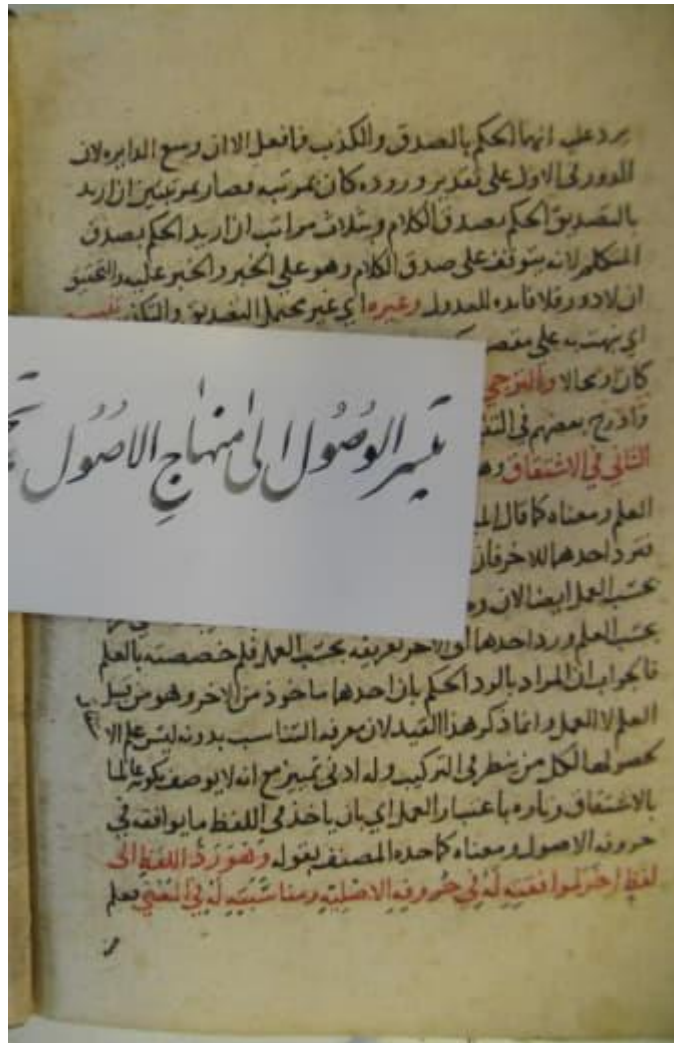 يرد عليه انهما الحكم بالصدق والكذب فما فعل الا ان وسع الدايره لان
الدور في الاول على تقدير وروده كان بمرتبه فصار بمرتبتين ان اريد
بالتصديق الحكم بصدق الكلام وبثلاث مراتب ان اريد الحكم بصدق
المتكلم لانه يتوقف على صدق الكلام وهو على الخبر والخبر عليه والتحقيق
ان لا دور فلا فائده للعدول وغيره اي غير محتمل التصديق والتكذيب تنبيه
اي نبهت به على
كان او محالا والترجي
وادرج بعضهم في
الثاني في الاشتقاق
العلم ومعناه كما قال
فترد احدهما للاخر فان
بحسب العمل ايضا لان
تيسير الوصول الى منهاج الاصول
بحسب العلم ورد احدهما الى الاخر تعريفه بحسب العمل فلم خصصته بالعلم
فالجواب ان المراد بالرد الحكم بان احدهما ماخوذ من الاخر وهو من قبيل
العلم لا العمل وانما ذكر هذا القيد لان معرفه التناسب بدونه ليس علم الا
لحصولها لكل من ينظر في التركيب وله ادنى تمييز مع انه لا يوصف بكونه عالما
بالاشتقاق وتاره باعتبار العمل اي بان ياخذ من اللفظ ما يوافقه في
حروفه الاصول ومعناه كما حده المصنف بقوله وهو رد اللفظ الى
لفظ اخر لموافقته له في حروفه الاصليه ومناسبته له في المعنى يعلم